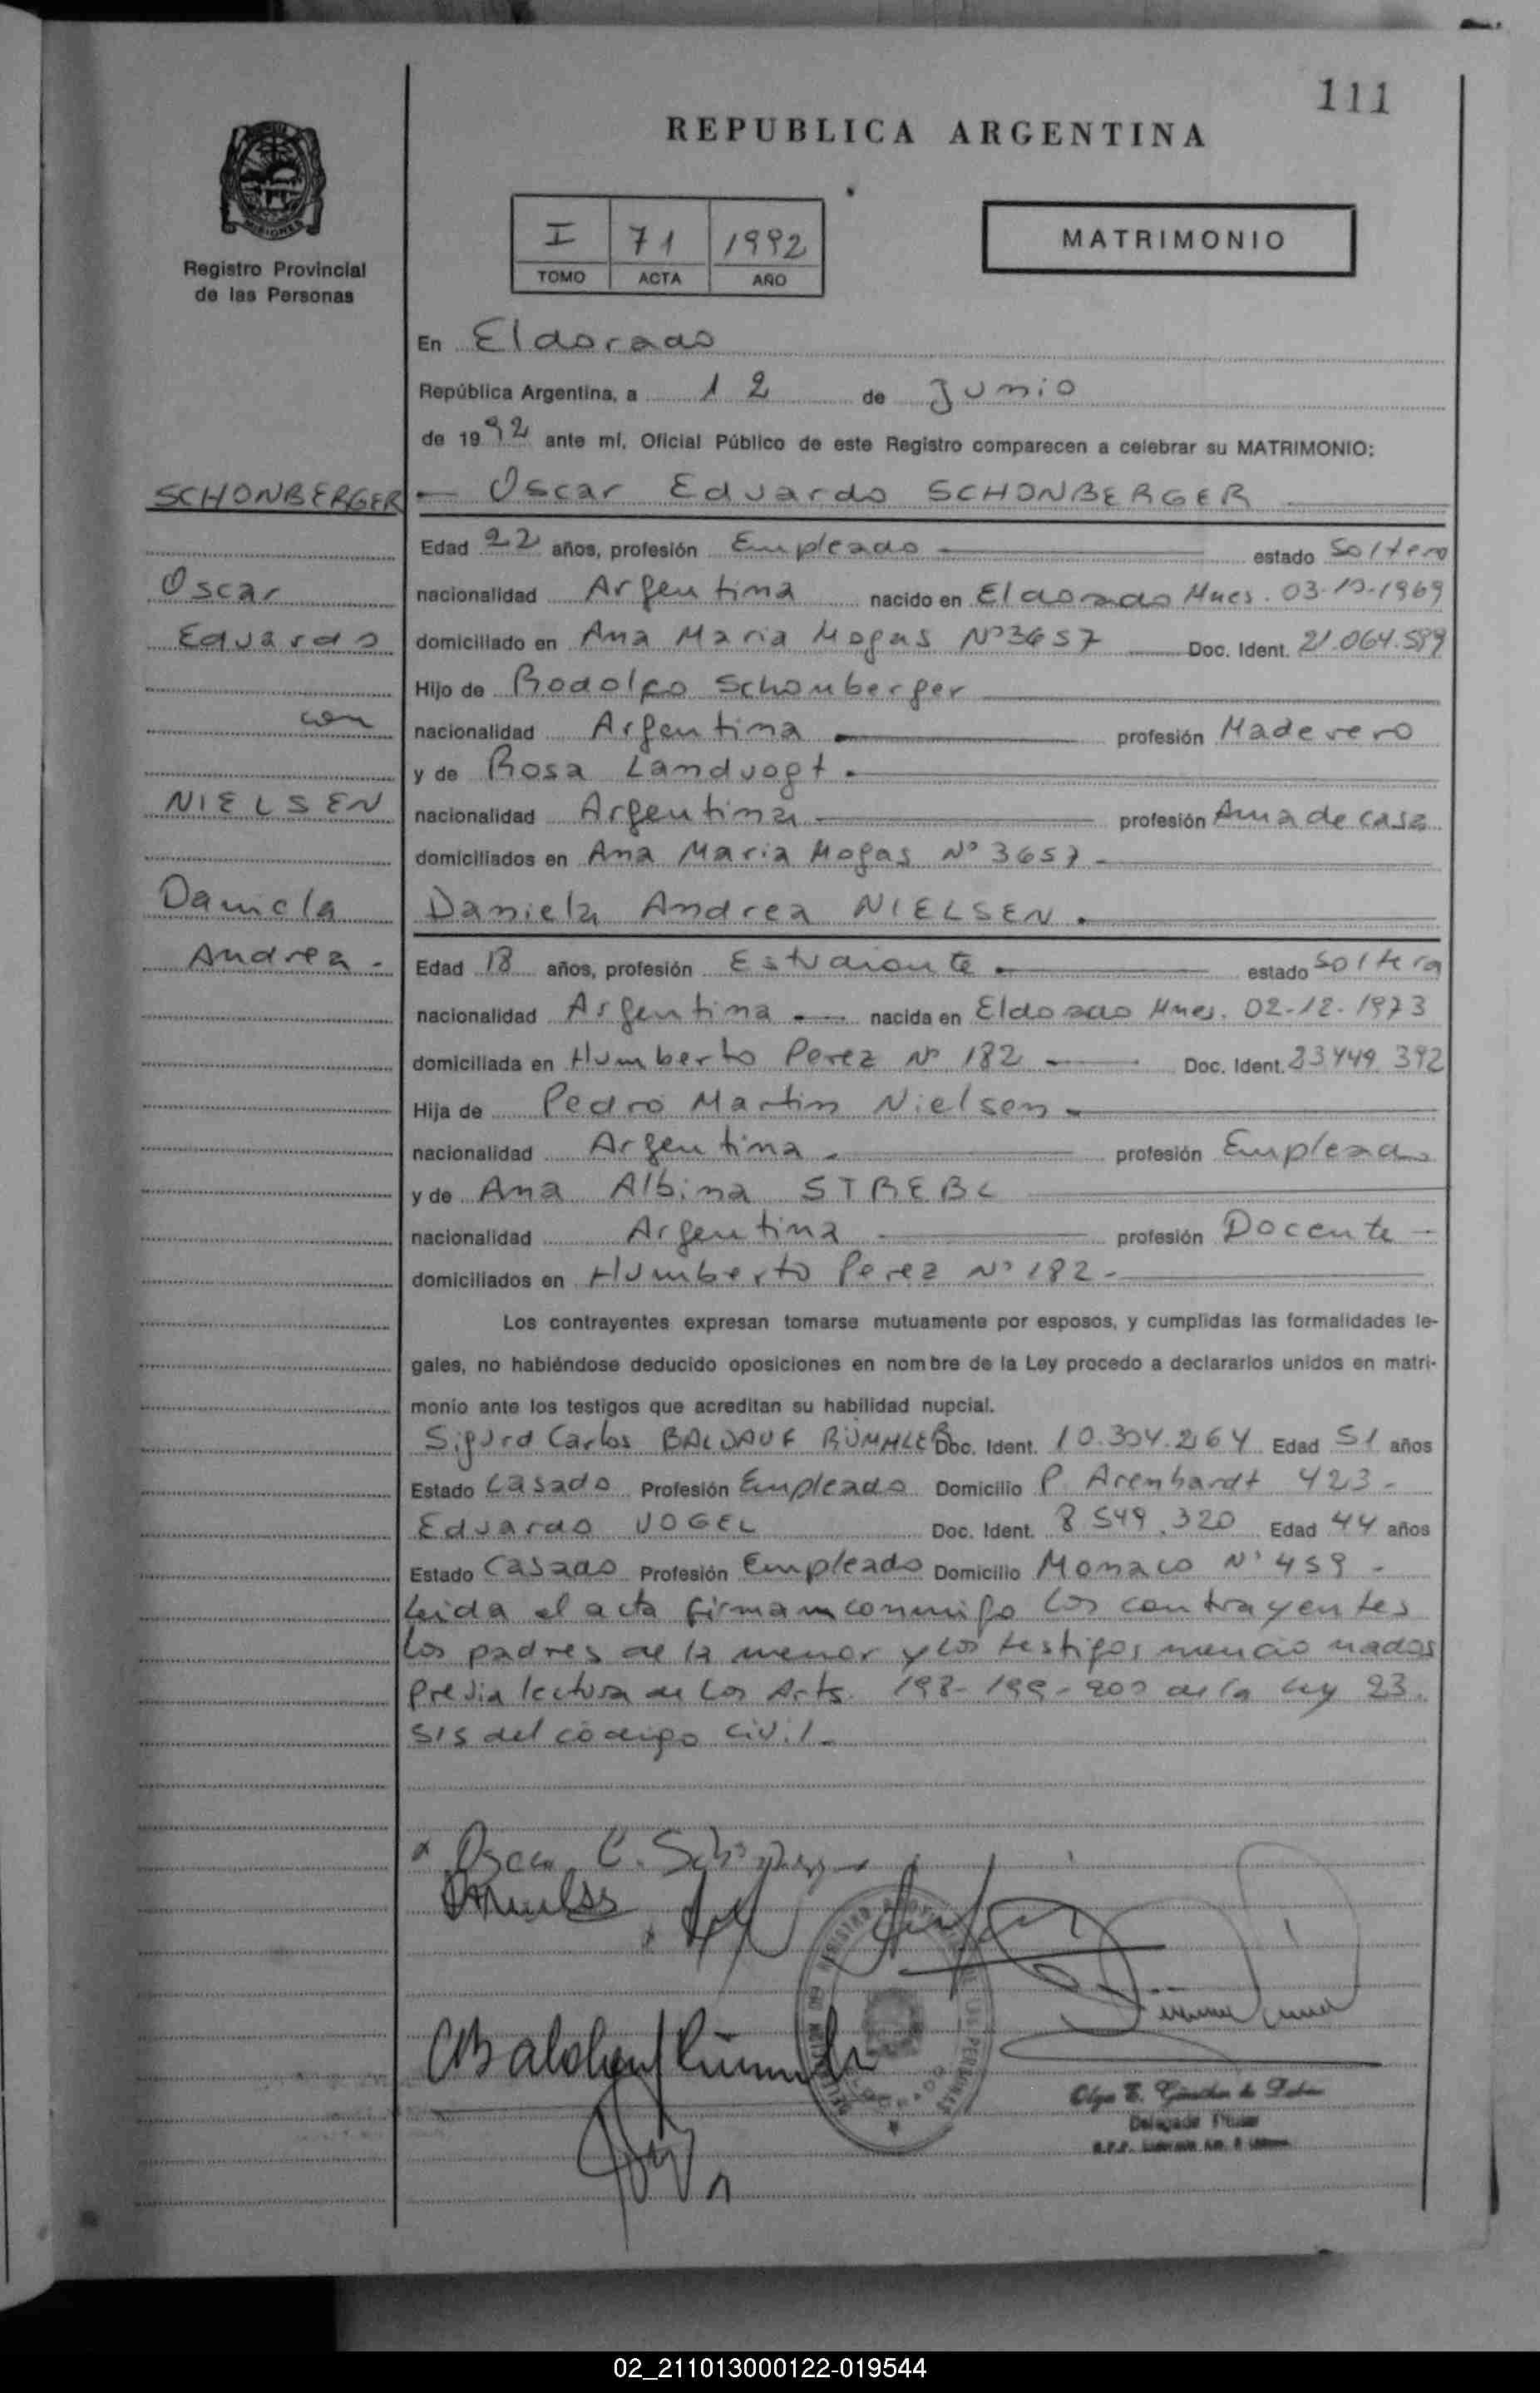 111
REPUBLICA ARGENTINA
MISIONES
Registro Provincial
de las Personas
I 71 1992
TOMO ACTA AÑO
MATRIMONIO
En Eldorado
República Argentina, a 12 de Junio
de 1992 ante mí, Oficial Público de este Registro comparecen a celebrar su MATRIMONIO:
SCHONBERGER
Oscar
Eduardo
con
NIELSEN
Daniela
Andrea -
— Oscar Eduardo SCHONBERGER
Edad 22 años, profesión Empleado estado Soltero
nacionalidad Argentina nacido en Eldorado Mnes. 03-10-1969
domiciliado en Ana Maria Mogas Nº 3657 Doc. Ident. 21.064.589
Hijo de Rodolfo Schonberger
nacionalidad Argentina profesión Maderero
y de Rosa Landvogt.
nacionalidad Argentina profesión Ama de casa
domiciliados en Ana Maria Mogas Nº 3657 -
Daniela Andrea NIELSEN.
Edad 18 años, profesión Estudiante estado Soltera
nacionalidad Argentina nacida en Eldorado Mnes. 02-12-1973
domiciliada en Humberto Perez Nº 182 Doc. Ident. 23449392
Hija de Pedro Martin Nielsen
nacionalidad Argentina profesión Empleado
y de Ana Albina STREBL
nacionalidad Argentina profesión Docente -
domiciliados en Humberto Perez Nº 182 -
Los contrayentes expresan tomarse mutuamente por esposos, y cumplidas las formalidades le-
gales, no habiéndose deducido oposiciones en nombre de la Ley procedo a declararlos unidos en matri-
monio ante los testigos que acreditan su habilidad nupcial.
Sigurd Carlos BALDAUF RÜMMLER Doc. Ident. 10.304.264 Edad 51 años
Estado Casado Profesión Empleado Domicilio P. Arenhardt 423 -
Eduardo VOGEL Doc. Ident. 8549.320 Edad 44 años
Estado Casado Profesión Empleado Domicilio Monaco Nº 459 -
Leida el acta firman conmigo los contrayentes
los padres de la menor y los testigos mencionados
Previa lectura de los Arts. 198-199-200 de la Ley 23.
515 del código civil.
Oscar E.
02_211013000122-019544